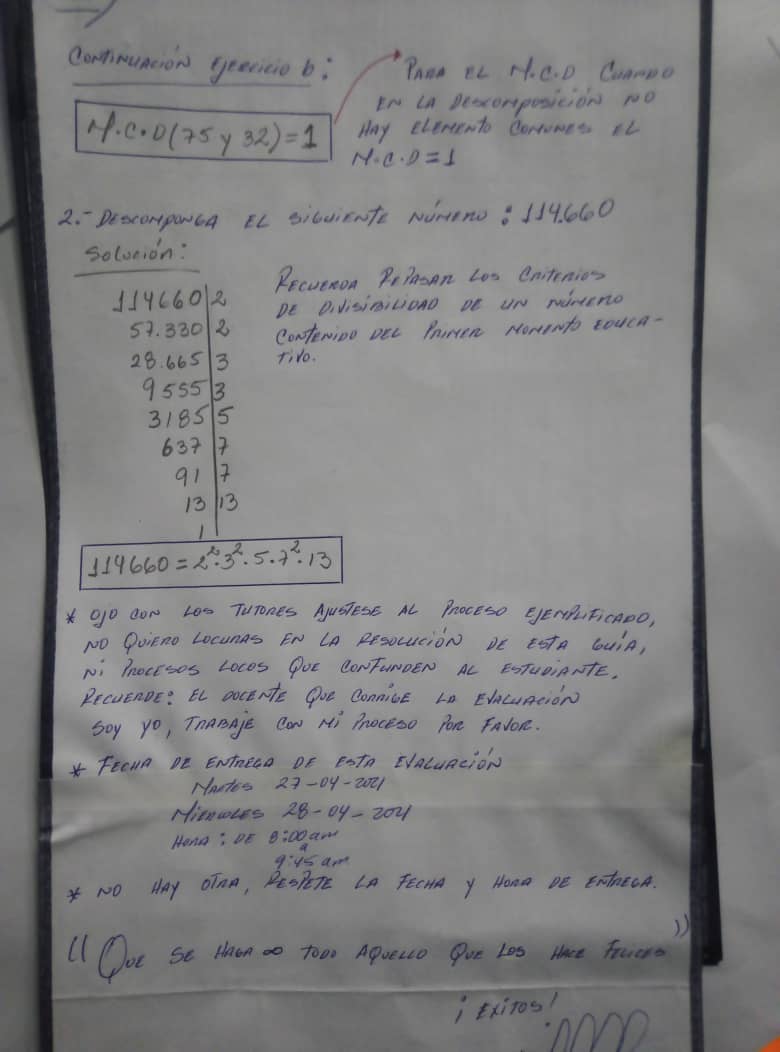 Continuación Ejercicio b:
Para el M.C.D cuando
en la descomposición no
hay elemento comunes el
M.C.D=1
M.C.D(75 y 32)=1
2.- Descomponga el siguiente número: 114.660
Solución:
114660|2
57.330|2
28.665|3
9555|3
3185|5
637|7
91|7
13|13
1|
Recuerda repasar los criterios
de divisibilidad de un número
contenido del primer momento educa-
tivo.
114660=2².3².5.7².13
* Ojo con los tutores ajustese al proceso ejemplificado,
no quiero locuras en la resolución de esta guía,
ni procesos locos que confunden al estudiante.
Recuerde: el docente que corrige la evaluación
soy yo, trabaje con mi proceso por favor.
* Fecha de entrega de esta evaluación
Martes 27-04-2021
Miercoles 28-04-2021
Hora: de 8:00 am
a
9:45 am
* No hay otra, respete la fecha y hora de entrega.
"Que se haga ∞ todo aquello que los hace felices"
¡Exitos!